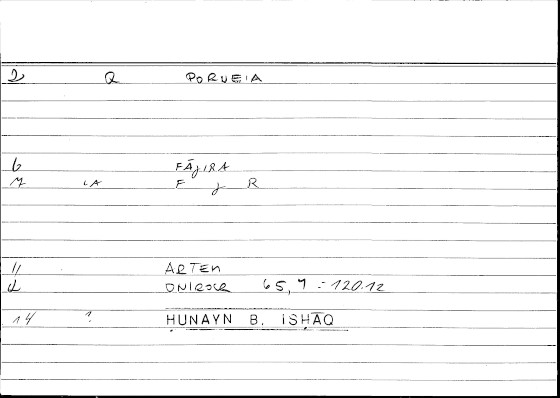 2 Q PORNEIA
6 FĀJIRA
7 IA F J R
11 ARTEM
12 ONIROCR 65,7 = 120.12
14 ? ḤUNAYN B. ISḤĀQ